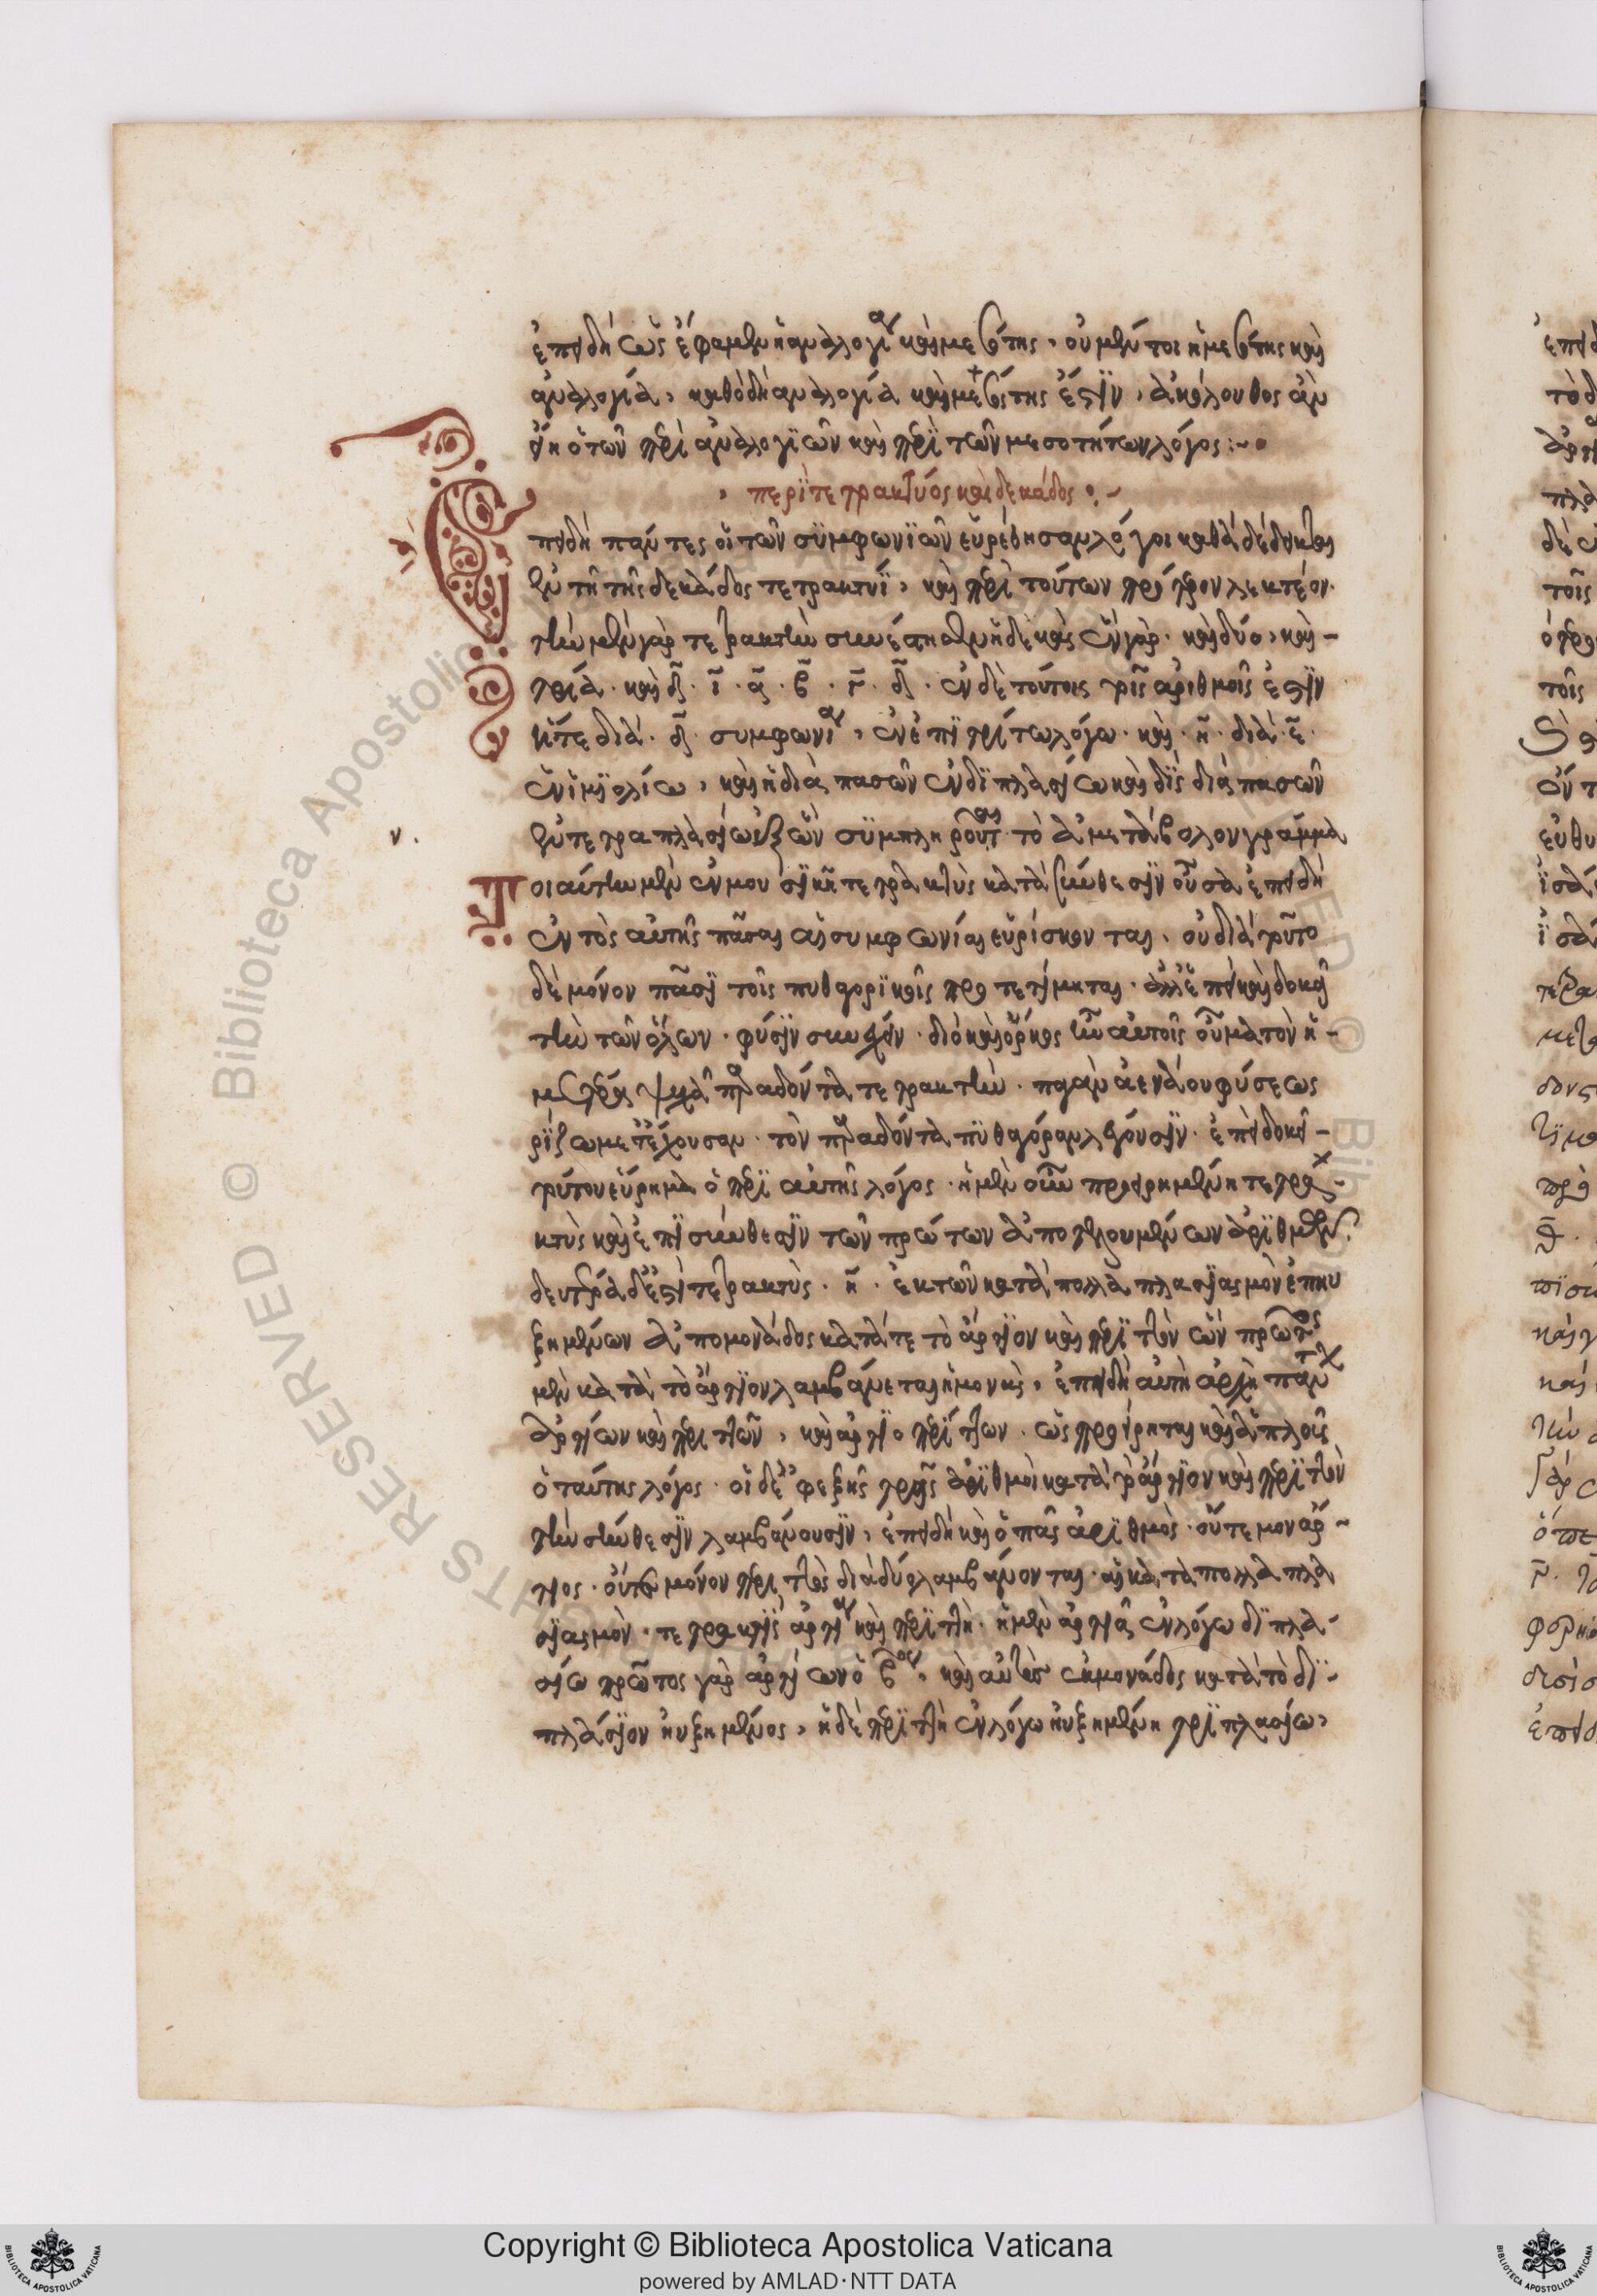 ἐπειδὴ ὡς ἔφαμεν ἡ ἀναλογία καὶ μεσότης, οὐ μέντοι ἡ μεσότης καὶ
ἀναλογία, καθὸ δὴ ἀναλογία καὶ μεσότης ἐστὶν, ἀκόλουθος ἂν
εἴη ὁ τῶν περὶ ἀναλογιῶν καὶ περὶ τῶν μεσοτήτων λόγος :~
περὶ τετρακτύος καὶ δεκάδος :~
πειδὴ πάντες οἱ τῶν συμφωνιῶν εὑρέθησαν λόγοι καθὰ δέδεικται
ἐν τῇ τῆς δεκάδος τετρακτύι, καὶ περὶ τούτων πρότερον λεκτέον.
τὴν μὲν γὰρ τετρακτὺν συνέστησεν ἡ δεκὰς ἓν γὰρ. καὶ δύο, καὶ
τρία. καὶ δ. ι. α. β. γ. δ. ἐν δὲ τούτοις τοῖς ἀριθμοῖς ἐστὶν
ἥτε διὰ. δ. συμφωνία, ἐν ἐπιτρίτω λόγω. καὶ. ἡ. διὰ. ε.
ἐν ἡμιολίω, καὶ ἡ διὰ πασῶν ἐν διπλασίω καὶ δὶς διὰ πασῶν
ἐν τετραπλασίω ἐξ ὧν συμπληροῦται τὸ ἀμετάβολον γράμμα
ν.
Τοιαύτη μὲν ἐν μουσικῇ τετρακτὺς κατὰ σύνθεσιν οὖσα ἐπειδὴ
ἐντὸς αὐτῆς πᾶσαι αἱ συμφωνίαι εὑρίσκονται. οὐ διὰ τοῦτο
δὲ μόνον πᾶσι τοῖς πυθαγορικοῖς προτετίμηται. ἀλλ' ἐπεὶ καὶ δοκεῖ
τὴν τῶν ὅλων. φύσιν συνέχειν. διὸ καὶ ὅρκος ἦν αὐτοῖς οὐ μὰ τὸν
ψυχᾶ παραδόντα τετρακτὺν. παγὰν ἀενάου φύσεως
ῥίζωμά τ' ἔχουσαν. τὸν παραδόντα πυθαγόραν λέγουσιν. ἐπεὶ δοκεῖ
τούτου εὕρημα ὁ περὶ αὐτῆς λόγος. ἡ μὲν οὖν προειρημένη τετρα
κτὺς καὶ ἐπισύνθεσιν τῶν πρώτων ἀποτελουμένων ἀριθμῶν
δευτέρα δ' ἐστὶ τετρακτὺς. ἡ. ἐκ τῶν κατὰ πολλαπλασιασμὸν ἐπηυ
ξημένων ἀπὸ μονάδος κατά τε τὸ ἄρτιον καὶ περιττὸν ὧν πρῶτος
μὲν κατὰ τὸ ἄρτιον λαμβάνεται ἡ μονὰς, ἐπειδὴ αὐτὴ ἀρχὴ πάντων
ἀρτίων καὶ περιττῶν, καὶ ἀρτιοπερίττων. ὡς προείρηται καὶ ἁπλοῦς
ὁ ταύτης λόγος. οἱ δ' ἐφεξῆς τρεῖς ἀριθμοὶ κατὰ τὸ ἄρτιον καὶ περιττὸν
τὴν σύνθεσιν λαμβάνουσιν, ἐπειδὴ καὶ ὁ πᾶς ἀριθμὸς. οὔτε μόνον ἄρ
τιος. οὔτε μόνον περιττὸς διὰ δύο λαμβάνονται. αἱ κατὰ πολλαπλα
σιασμὸν. τετρακτὺς ἀρτία καὶ περιττὴ. ἡ μὲν ἀρτία ἐν λόγω διπλα
σίω πρῶτος γὰρ ἀρτίων ὁ β, καὶ αὐτὸς ἐκ μονάδος κατὰ τὸ δι
πλάσιον ηὐξημένος, ἡ δὲ περιττὴ ἐν λόγω ηὐξημένη τριπλασίω,
Copyright © Biblioteca Apostolica Vaticana
powered by AMLAD·NTT DATA